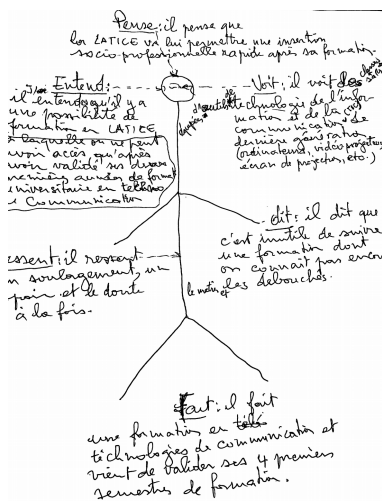 Pense: il pense que
la LATICE va lui permettre une insertion
socio-professionnelle rapide après sa formation.
Entend:
il entend qu'il y a
une possibilité de
formation en LATICE
à laquelle on ne peut
avoir accès qu'après
avoir validé les deux
premières années de format
universitaire en techno
Communication
Voit: il voit des
technologie de l'infor-
mation et de la
communication de
dernière génération
(ordinateurs, vidéo projecteurs
écran de projection, etc.)
dit: il dit que
c'est inutile de suivre
une formation dont
on connait pas encore
le métier et les débouchés.
essent: il ressent
un soulagement, un
espoir et le doute
à la fois.
Fait: il fait
une formation en
technologies de communication et
vient de valider ses 4 premiers
semestres de formation.